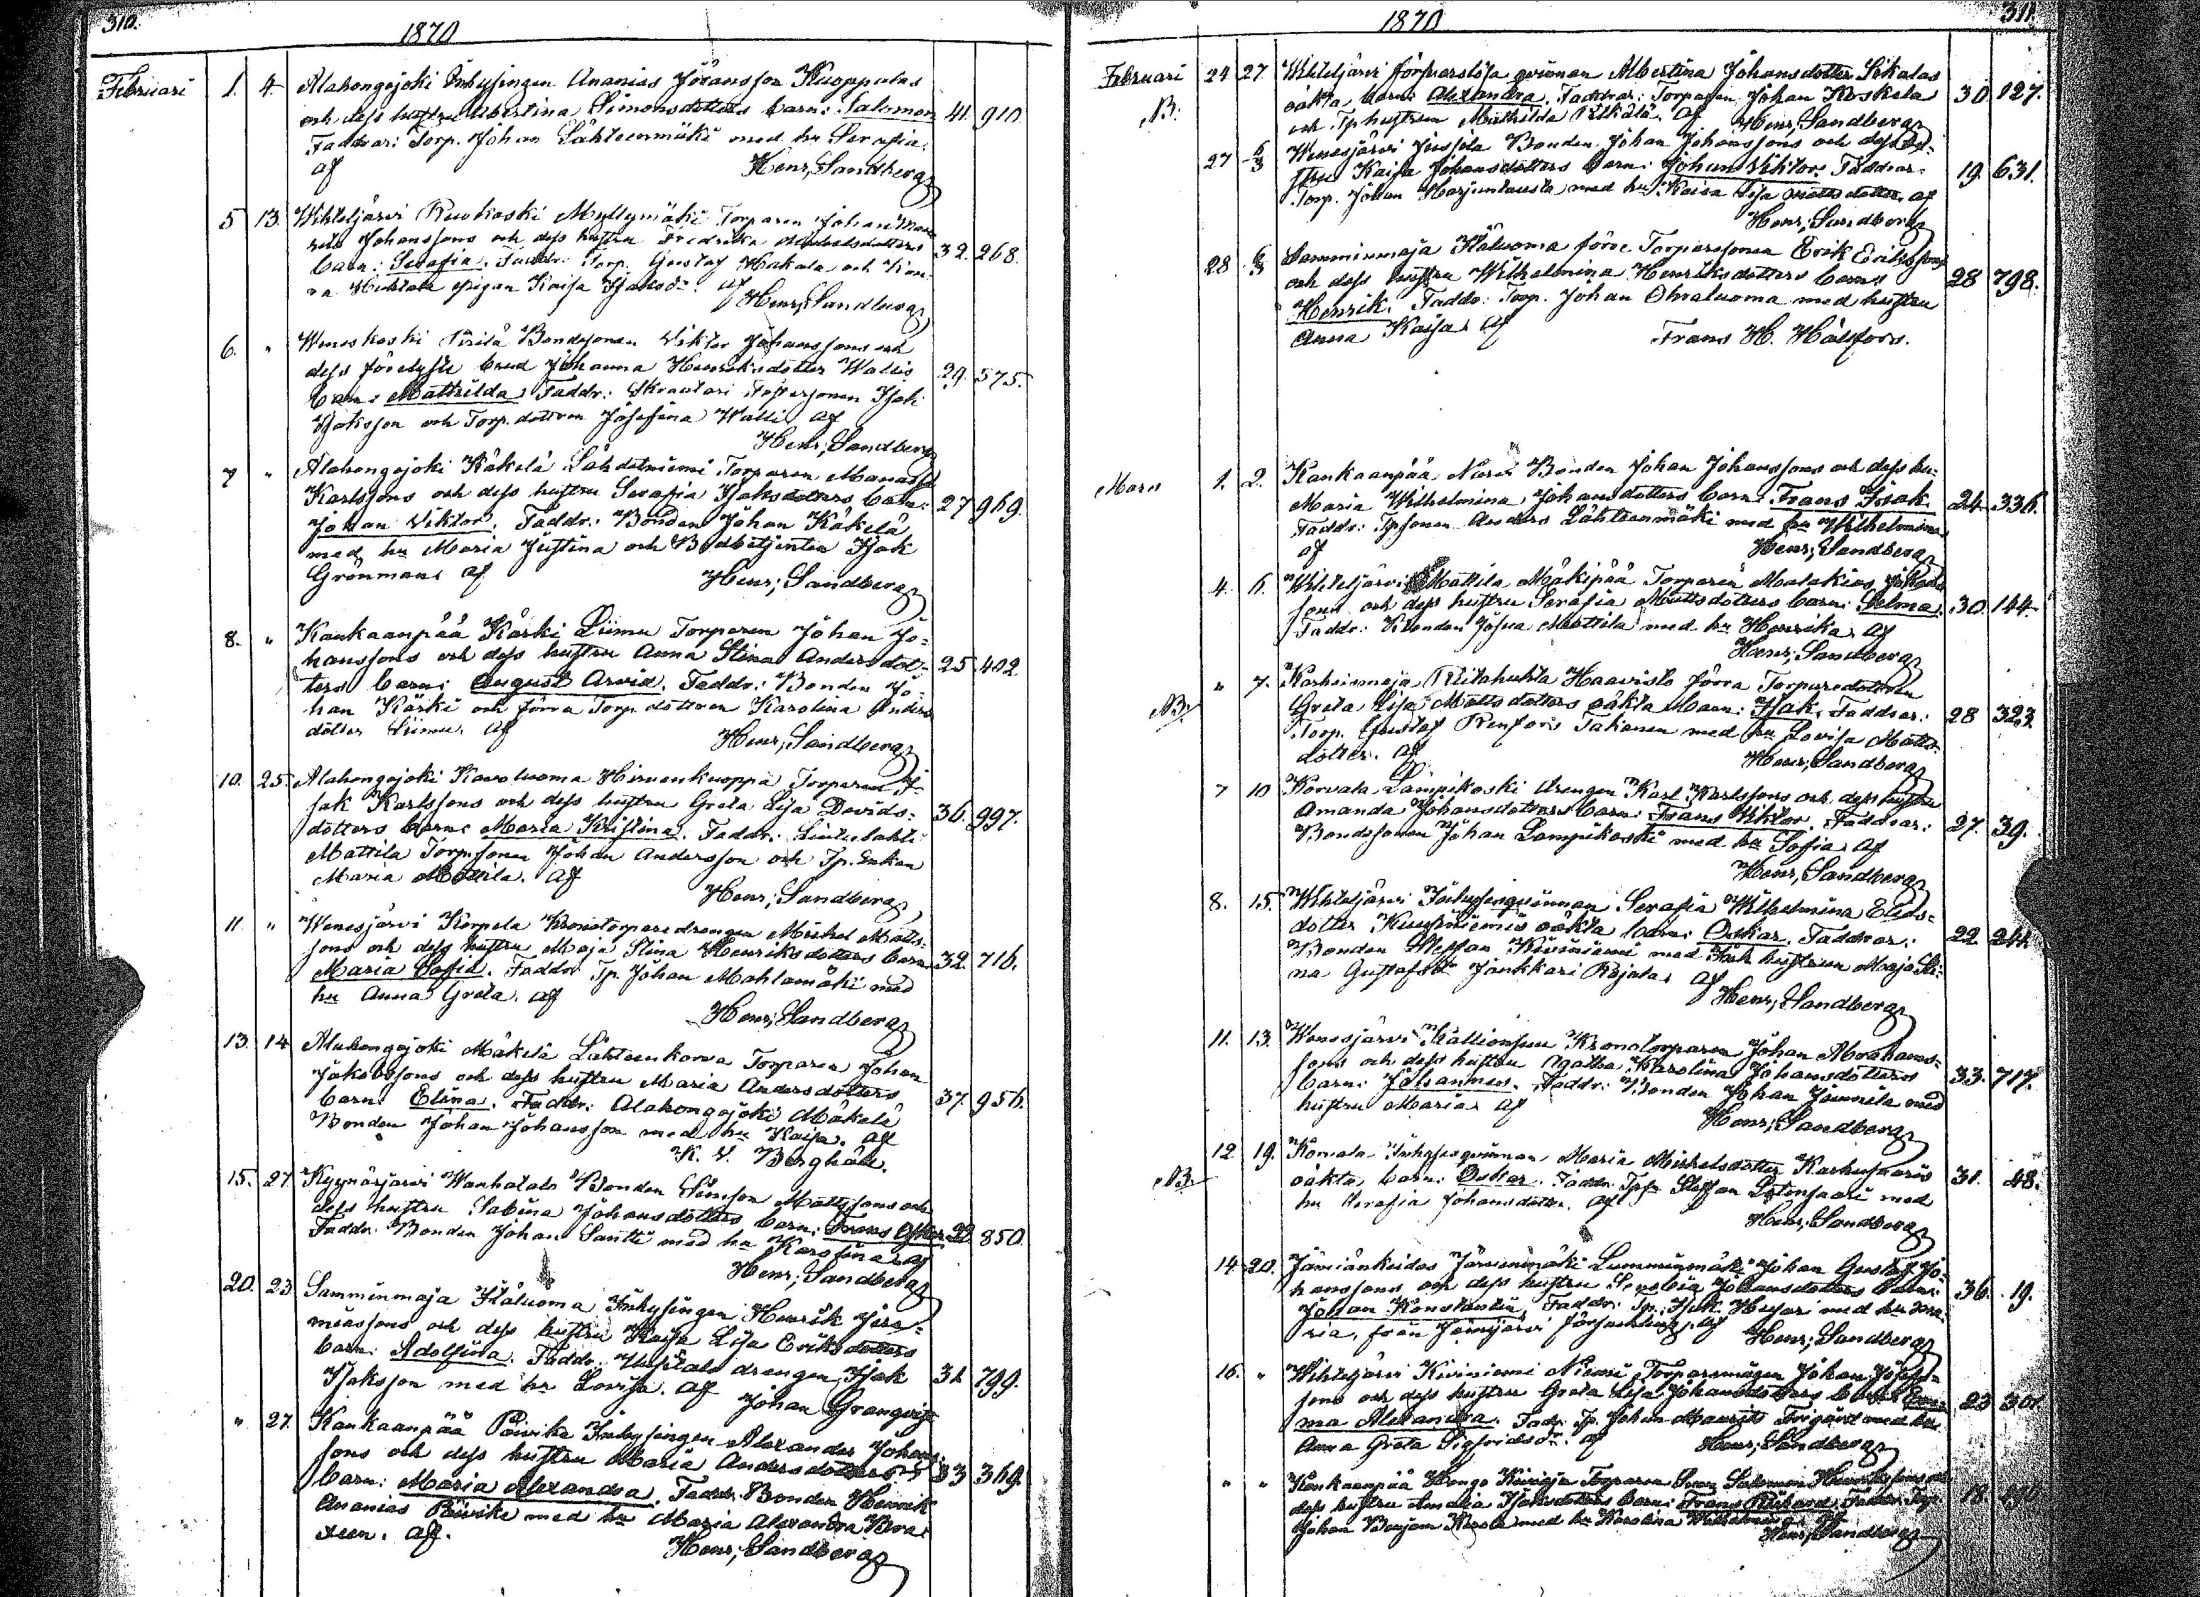 310.
1870
Februari 1. 4. Alahongojoki Inhysingen Ananias Göransson Kuoppalas
och dess hustru Albertina Simonsdotters barn: Salomon 41. 910
Faddrar: Torp. Johan Lähteenmäki med hu Serafia.
af
Henr; Sandberg
5 13. Wihteljärvi Ruokoski Myllymäki Torparen Johan
Johanssons och dess hustru Fredrika dotters 32. 268.
barn: Serafia. Faddr: Torp. Gustaf Hakala och
pigan Kaisa Isaksdr. af
Henr; Sandberg
6. " Weneskoski Bondesonen Viktor Johanssons och
dess förelyste brud Johanna Henriksdotter Wallis 29. 575.
barn: Mathilda. Faddr: Isak
Isaksson och Torp. dottren Josefina Walli. af
Henr; Sandberg
7 " Alahongojoki Käkelä Lähdetniemi Torparen Manasse
Karlssons och dess hustru Serafia Isaksdotters barn: 27 969.
Johan Viktor. Faddr: Bonden Johan Käkelä
med hu Maria Justina och Isak
Grönman. af Henr; Sandberg
8. " Kankaanpää Karki Liimu Torparen Johan Jo=
hanssons och dess hustru Anna Stina Andersdot= 25 402
ters barn: August Arvid. Faddr: Bonden Jo=
han Karki och förra Torp. dottren Karolina Anders
dotter Liimu. af
Henr; Sandberg
10. 25. Alahongojoki Kawoluoma Hirvenkuoppa Torparen I=
sak Karlssons och dess hustru Greta Lisa Davids= 36. 997.
dotters barn: Maria Kristina. Faddr:
Mattila Torp.sonen Johan Andersson och Tp. Enkan
Maria Mattila. af
Henr; Sandberg
11. " Wenesjärvi Korpela Kronotorparedrengen Mickel Matts=
sons och dess hustru Maja Stina Henriksdotters barn 32. 716.
Maria Sofia. Faddr Tp. Johan Mahlamäki med
hu Anna Greta. af
Henr; Sandberg
13. 14 Alahongojoki Mäkelä Lähteenkorva Torparen Johan
Jakobssons och dess hustru Maria Andersdotters
barn: Elina. Faddr: Alahongojoki Mäkelä 37. 956.
Bonden Johan Johansson med hu Kaisa. af
K. V. Berghäll.
15. 27 Kyynärjärvi Wanhatalo Bonden Simson Mattssons och
dess hustru Sabina Johansdotters barn: Frans Oskar 22 850.
Faddr: Bonden Johan Santti med hu Karolina af
Henr; Sandberg
20. 23. Samminmaja Kåluoma Inhysingen Henrik Jere=
miassons och dess hustru Kaisa Lisa Eriksdotters
barn: Adolfina. Faddr: drengen Isak 31. 799.
Isaksson med hu Lovisa. af Johan Granqvist
" 27. Kankaanpää Päivike Inhysingen Alexander Johans
sons och dess hustru Maria Andersdotters 33 369.
barn: Maria Alexandra. Faddr: Bonden Henrik
Ananias Päivike med hu Maria Alexandra
af.
Henr; Sandberg
311.
1870
Februari 24 27. Wihteljärvi försvarslösa qvinnan Albertina Johansdotter Sikalas
NB. oäkta barn: Alexandra. Faddrar: Torparen Johan Koskela 30 127.
och Tp hustrun Mathilda af Henr; Sandberg
27 6/3 Wenesjärvi Jussila Bonden Johan Johanssons och dess hu=
stru Kaisa Johansdotters barn: Johan Viktor. Faddrar: 19. 631.
Torp. Johan Harjunkausta med hu Kaisa Lisa Mattsdotter. af
Henr; Sandberg
28 6/3 Samminmaja Kåluoma förre Torparesonen Erik Erikssons
och dess hustru Wilhelmina Henriksdotters barn: 28 798.
Henrik. Faddr: Torp. Johan Ohraluoma med hustru
Anna Kaisa. af Frans H. Hälsfors.
Mars 1. 2. Kankaanpää Narvi Bonden Johan Johanssons och dess hu:
Maria Wilhelmina Johansdotters barn: Frans Isak. 24 336.
Faddr: Tpsonen Anders Lähteenmäki med hu Wilhelmina
af Henr; Sandberg
4. 6. Wihteljärvi Mattila Mäkipää Torparen Malakias
sons och dess hustru Serafia Mattsdotters barn: Selma. 30. 144.
Faddr: Bonden Josua Mattila med hu Henrika. af
Henr; Sandberg
" 7. Karhoismaja Riitahuhta Haavisto förra Torparedottren
NB Greta Lisa Mattsdotters oäkta barn: Isak. Faddrar: 28 323
Torp. Gustaf Renfors Takanen med hu Lovisa Matts
dotter. af
Henr; Sandberg
7 10 Korvala Lampikoski drengen Karl Karlssons och dess hustru
Amanda Johansdotters barn: Frans Viktor. Faddrar: 27. 39.
Bondsonen Johan Lampikoski med hu Sofia. af
Henr; Sandberg
8. 15. Wihteljärvi Inhysesqvinnan Serafia Wilhelmina Elids=
dotter Kuusiniemis oäkta barn: Oskar. Faddrar: 22.
Bonden Steffan Kiviniemi med Inh. hustrun Maja Sti=
na Gustafsdr Jankkari Rajala. af
Henr; Sandberg
11. 13. Wenesjärvi Kallionsuu Kronotorparen Johan Abrahams=
sons och dess hustru Agatha Karolina Johansdotters
barn: Johannes. Faddr: Bonden Johan Jaunila med 33. 717.
hustru Maria. af
Henr; Sandberg
12 19. Korvala Inhysesqvinnan Maria Mickelsdotter Karhusaaris
NB oäkta barn: Oskar. Faddr: Steffan Lotensaari med 31. 48.
hu Serafia Johansdotter. af
Henr; Sandberg
14 20. Jämiänkeidas Järvenmäki Lumminmäki Johan Gustaf Jo=
hanssons och dess hustru Serafia Johansdotters barn: 36. 19.
Johan Konstantin. Faddr: Tp. Isak Heijari med hu Ma=
ria, från Jämijärvi församling, af
Henr; Sandberg
16. " Wihteljärvi Kiviniemi Niemi Torparemågen Johan Josefs=
sons och dess hustru Greta Lisa Johansdotters barn: Em= 23 301.
ma Alexandra. Fadr: Tp. Johan Maurits Frigård med hu
Anna Greta Sigfridsdr. af Henr; Sandberg
" " Kankaanpää Hongo Torparen Salomon
dess hustru Amalia Isaksdotters barn: Frans Rikard. Faddr: Torp. 18.
Johan Benjam med hu Karolina Wilhelmina af
Henr; Sandberg